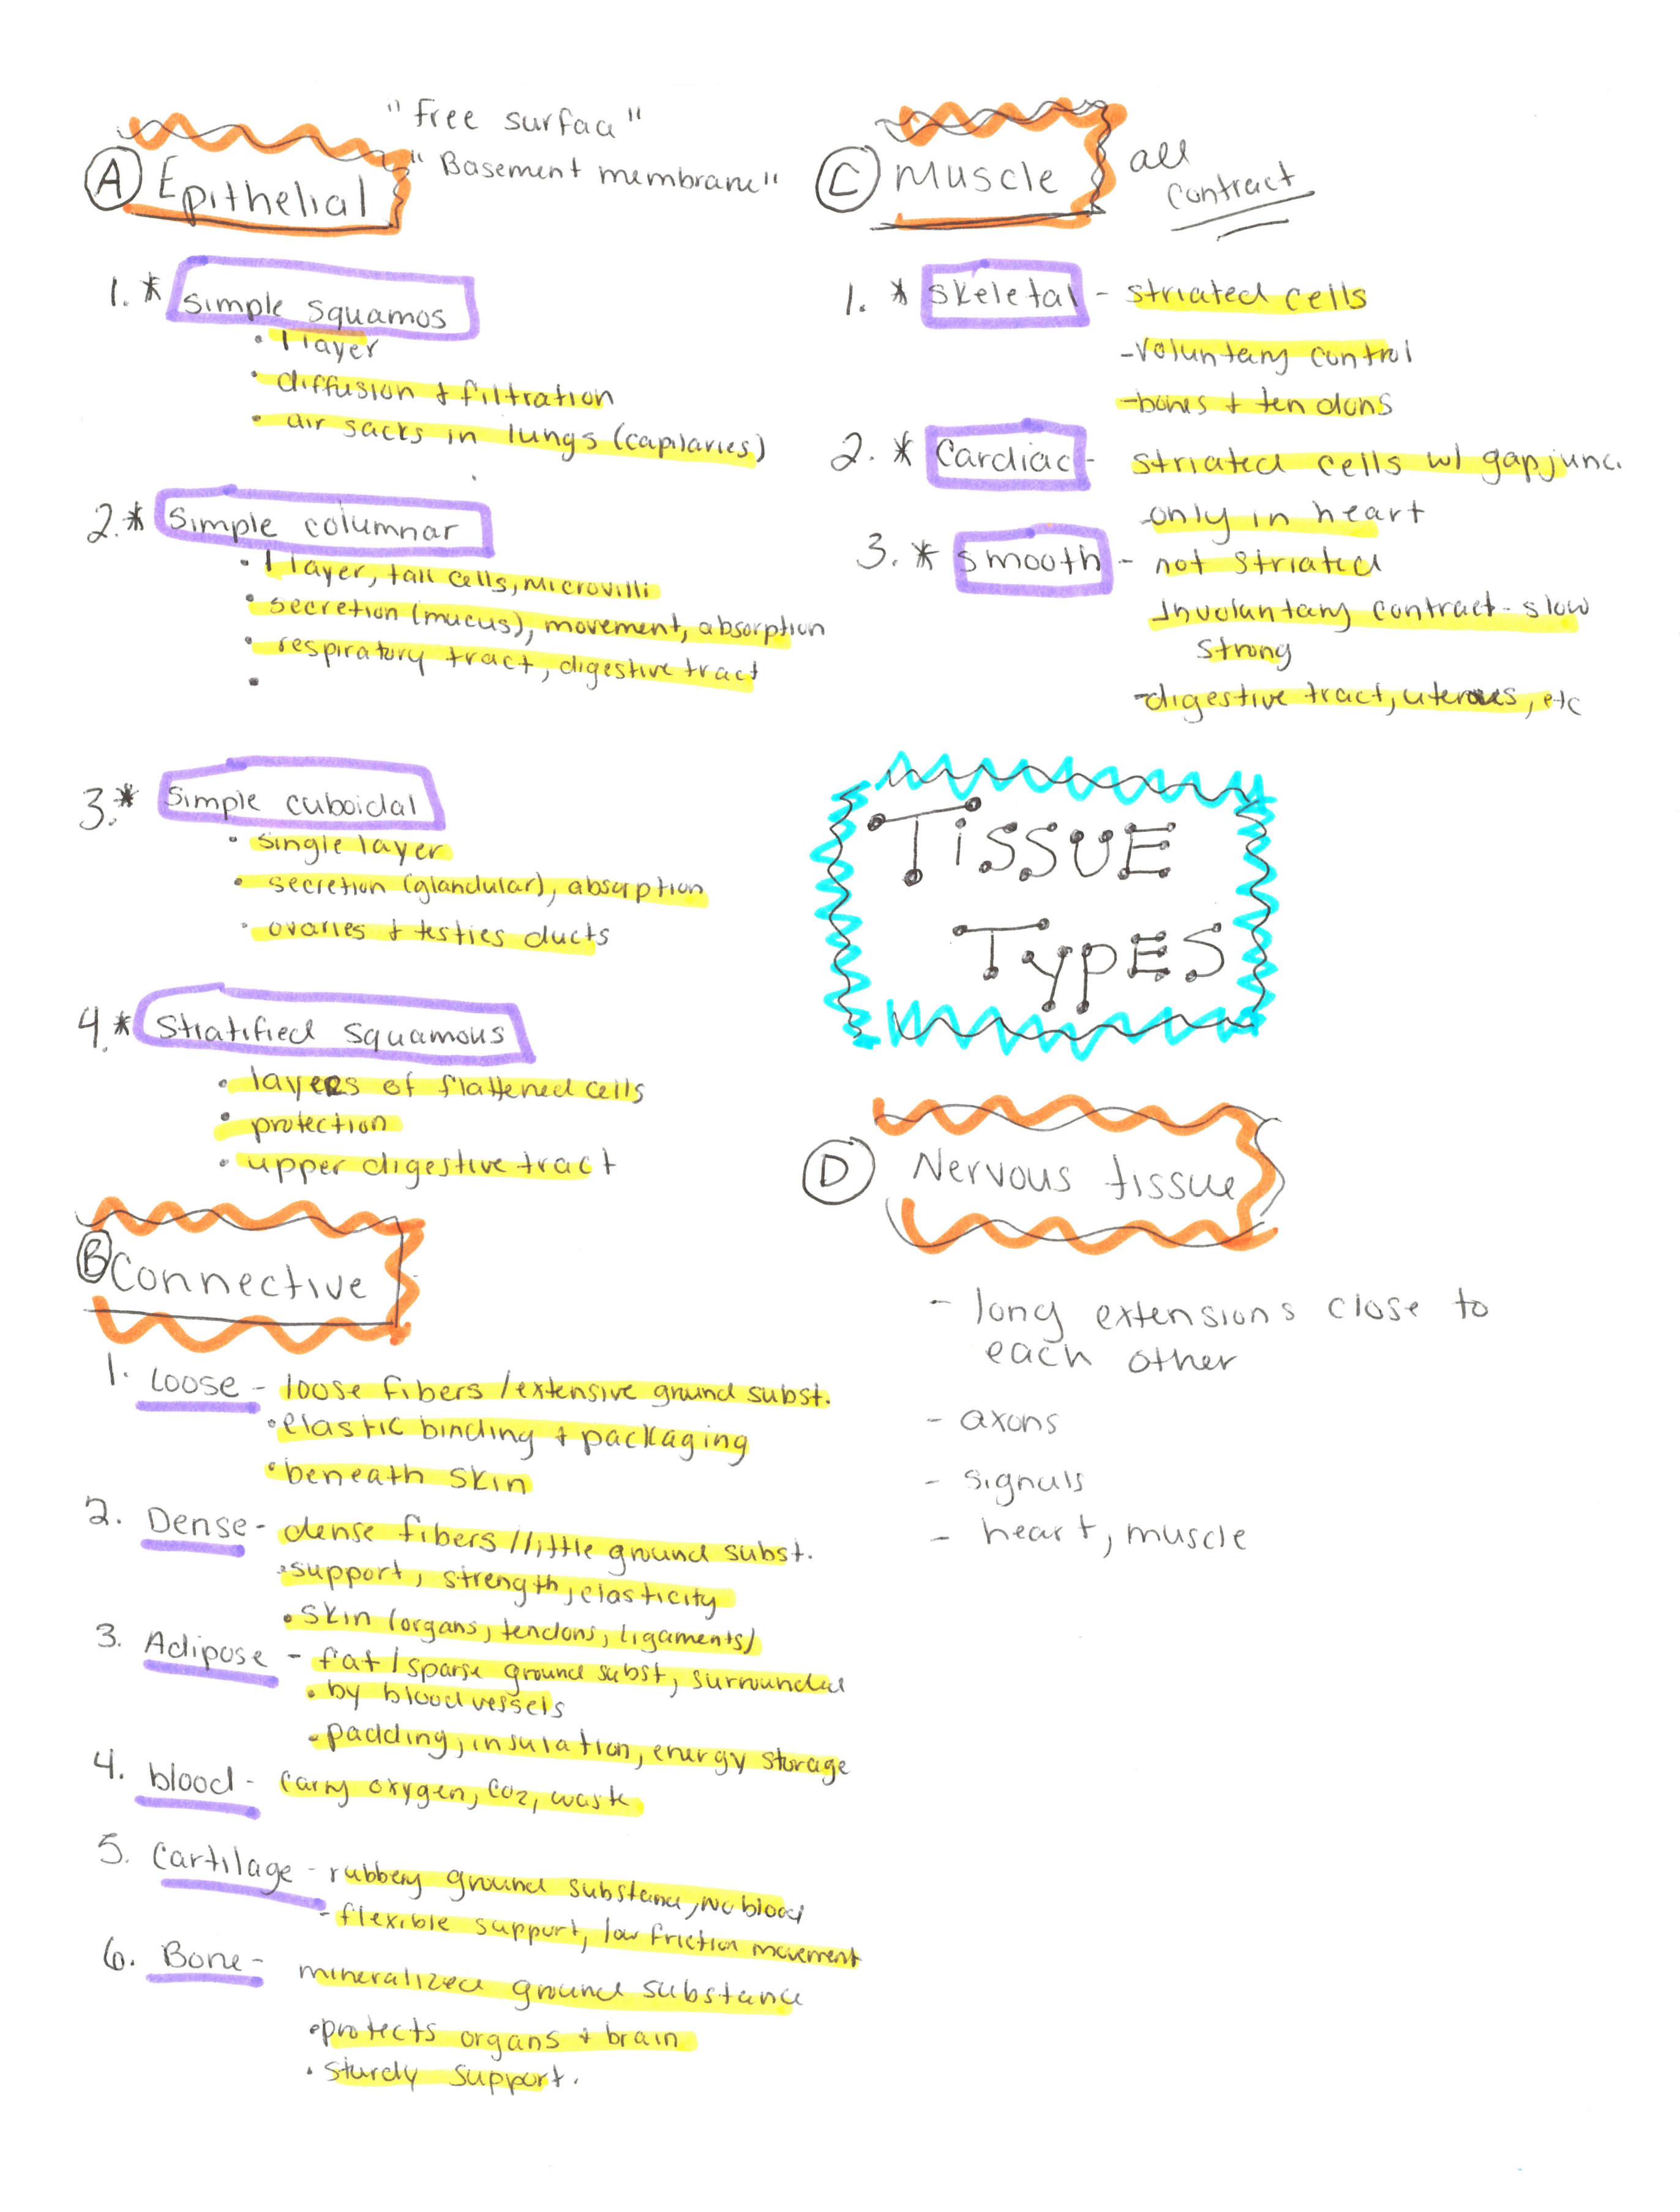 "free surfaa"
"Basement membrane"
A Epithelial
1. * simple squamos
• 1 layer
• diffusion + filtration
• air sacks in lungs (capilaries)
2. * Simple columnar
• 1 layer, tall cells, microvilli
• secretion (mucus), movement, absorption
• respiratory tract, digestive tract
•
3. * Simple cuboidal
• single layer
• secretion (glandular), absorption
• ovaries + testies ducts
4. * Stratified squamous
• layers of flattened cells
• protection
• upper digestive tract
B Connective
1. Loose - loose fibers / extensive ground subst.
• elastic binding + packaging
• beneath skin
2. Dense - dense fibers / little ground subst.
• support, strength, elasticity
• skin (organs, tendons, ligaments)
3. Adipose - fat / sparse ground subst, surrounded
• by blood vessels
• padding, insulation, energy storage
4. blood - carry oxygen, CO2, waste
5. Cartilage - rubbery ground substance, no blood
- flexible support, low friction movement
6. Bone - mineralized ground substance
• protects organs + brain
• sturdy support.
C Muscle
all
contract
1. * Skeletal - striated cells
- Voluntary control
- bones + tendons
2. * Cardiac - striated cells w/ gap junc.
- only in heart
3. * smooth - not striated
Involuntary contract - slow
strong
- digestive tract, uterous, etc
TISSUE
TYPES
D Nervous tissue
- long extensions close to
each other
- axons
- signals
- heart, muscle